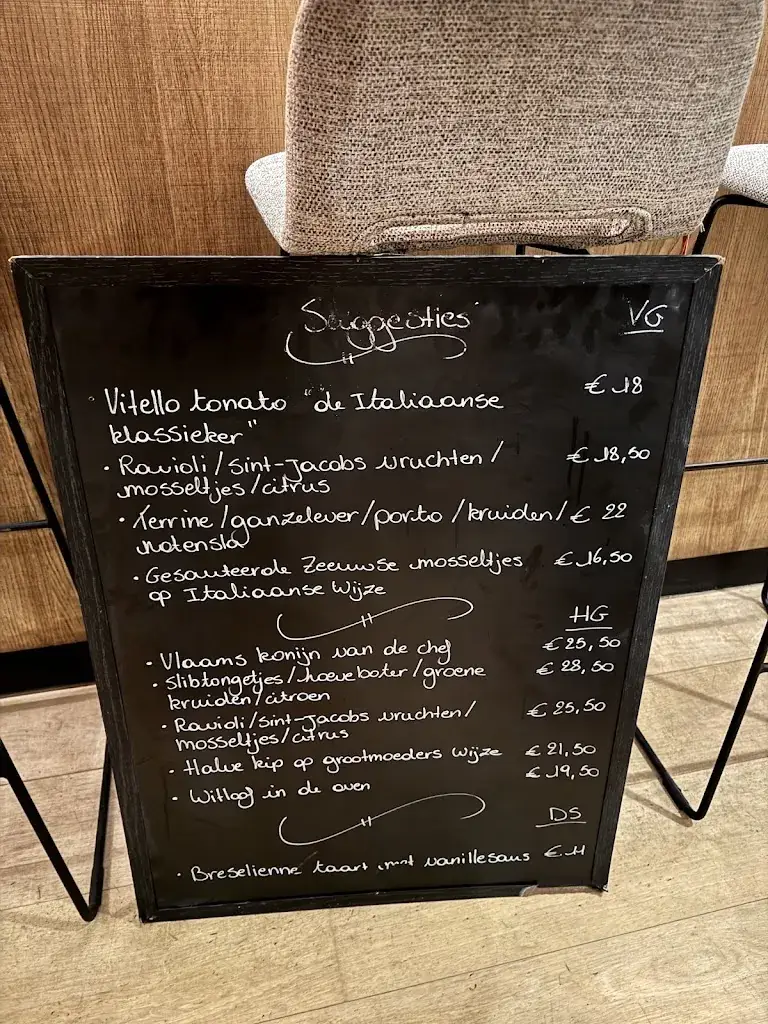 Suggesties VG
Vitello tonato "de Italiaanse € 18
klassieker"
· Ravioli/sint-Jacobs vruchten/ € 18,50
mosseltjes/citrus
· Terrine/ganzelever/porto/kruiden/ € 22
notensla
· Gesauteerde Zeeuwse mosseltjes € 16,50
op Italiaanse Wijze
HG
· Vlaams konijn van de chef € 25,50
· Slibtongetjes/hoeveboter/groene € 28,50
kruiden/citroen
· Ravioli/sint-Jacobs vruchten/ € 25,50
mosseltjes/citrus
· Halve kip op grootmoeders wijze € 21,50
· Witloof in de oven € 19,50
DS
· Breselienne taart met vanillesaus € 11